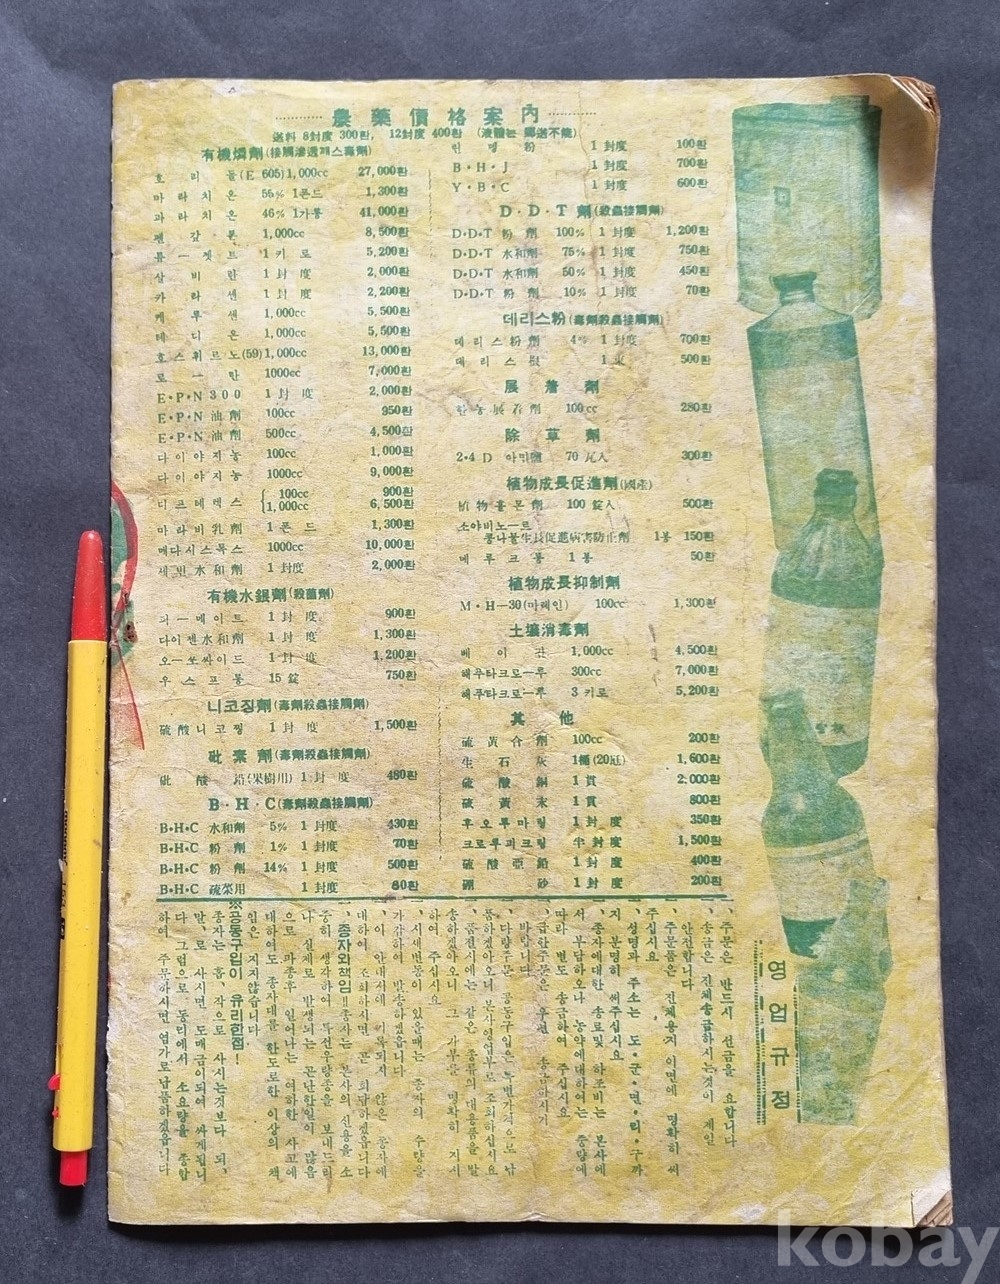 農藥價格案內
送料 8封度 300환, 12封度 400환 (液體는 郵送不能)
有機燐劑(接觸滲透개스毒劑)
호리돌(E 605) 1,000cc 27,000환
마라치온 55% 1폰드 1,300환
파라치온 46% 1가롱 41,000환
펜갚톤 1,000cc 8,500환
퓨ー젯트 1키로 5,200환
삼비란 1封度 2,000환
카라센 1封度 2,200환
케루센 1,000cc 5,500환
테디온 1,000cc 5,500환
호스휘르노(59) 1,000cc 13,000환
로ー란 1000cc 7,000환
E·P·N 300 1封度 2,000환
E·P·N 油劑 100cc 950환
E·P·N 油劑 500cc 4,500환
다이야지농 100cc 1,000환
다이야지농 1000cc 9,000환
디프테렉스 100cc 900환
1,000cc 6,500환
마라비乳劑 1폰드 1,300환
메다시스톡스 1000cc 10,000환
세빈水和劑 1封度 2,000환
有機水銀劑(殺菌劑)
퍼ー메이트 1封度 900환
다이센水和劑 1封度 1,300환
오ー쏘싸이드 1封度 1,200환
우스프롱 15錠 750환
니코징劑(毒劑殺蟲接觸劑)
硫酸니코찡 1封度 1,500환
砒素劑(毒劑殺蟲接觸劑)
砒酸鉛(果樹用) 1封度 480환
B·H·C(毒劑殺蟲接觸劑)
B·H·C 水和劑 5% 1封度 430환
B·H·C 粉劑 1% 1封度 70환
B·H·C 粉劑 14% 1封度 500환
B·H·C 蔬菜用 1封度 80환
인명粉 1封度 100환
B·H·J 1封度 700환
Y·B·C 1封度 600환
D·D·T 劑(殺蟲接觸劑)
D·D·T 粉劑 100% 1封度 1,200환
D·D·T 水和劑 75% 1封度 750환
D·D·T 水和劑 50% 1封度 450환
D·D·T 粉劑 10% 1封度 70환
데리스粉(毒劑殺蟲接觸劑)
데리스粉劑 4% 1封度 700환
데리스根 1束 500환
展着劑
한농展着劑 100cc 280환
除草劑
2·4 D 아민鹽 70瓦入 300환
植物成長促進劑(國產)
植物홀몬劑 100錠入 500환
소야비노ー트
콩나물生長促進病害防止劑 1봉 150환
메루크롱 1봉 50환
植物成長抑制劑
M·H-30(마레인) 100cc 1,300환
土壤消毒劑
베이갚 1,000cc 4,500환
해푸타크로ー루 300cc 7,000환
해푸타크로ー루 3키로 5,200환
其他
硫黃合劑 100cc 200환
生石灰 1桶(20瓩) 1,600환
硫酸銅 1貫 2.000환
硫黃末 1貫 800환
후오루마링 1封度 350환
크로루피크링 半封度 1,500환
硫酸亞鉛 1封度 400환
硼砂 1封度 200환
영업규정
一、주문은 반드시 선금을 요합니다
一、송금은 진체송금하시는것이 제일
안전합니다
一、주문품은 진체용지 이면에 명확히 써
주십시요
一、성명과 주소는 도·군·면·리·구까
지 분명히 써주십시요
一、종자에대한 송료및 하조비는 본사에
서 부담하오나 농약에대하여는 중량에
따라 별도 송금하여 주십시요
一、급한주문은 우편 송금마시기
바랍니다
一、다량주문 공동구입은 특별가격으로 납
품하겠아오니 본사영업부로 조회하십시요
一、품절시에는 같은 종류의 대용품을 발
송하겠아오니 그 가부를 명확히 지시
하여 주십시요
一、시세변동이 있을때는 종자의 수량을
가감하여 발송하겠읍니다
一、이 안내서에 기록되지 않은 종자에
대하여 조회하시면 곧 회답하겠읍니다
一、종자와책임‼종사는 본사의 신용을 소
중히 생각하여 특선우량종을 보내드리
나 실제로 발생되는 곤난한일이 많음
으로 파종후 일어나는 여하한 사고에
대하여도 종자대를 한도로한 이상의 책
임은 지지않습니다
※공동구입이 유리한점!
종자는 홉, 작으로 사시는것보다 되,
말,로 사시면 도매금이되여 싸게됩니
다 그럼으로 동리에서 소요량을 종합
하여 주문하시면 염가로납품하겠읍니다
kobay